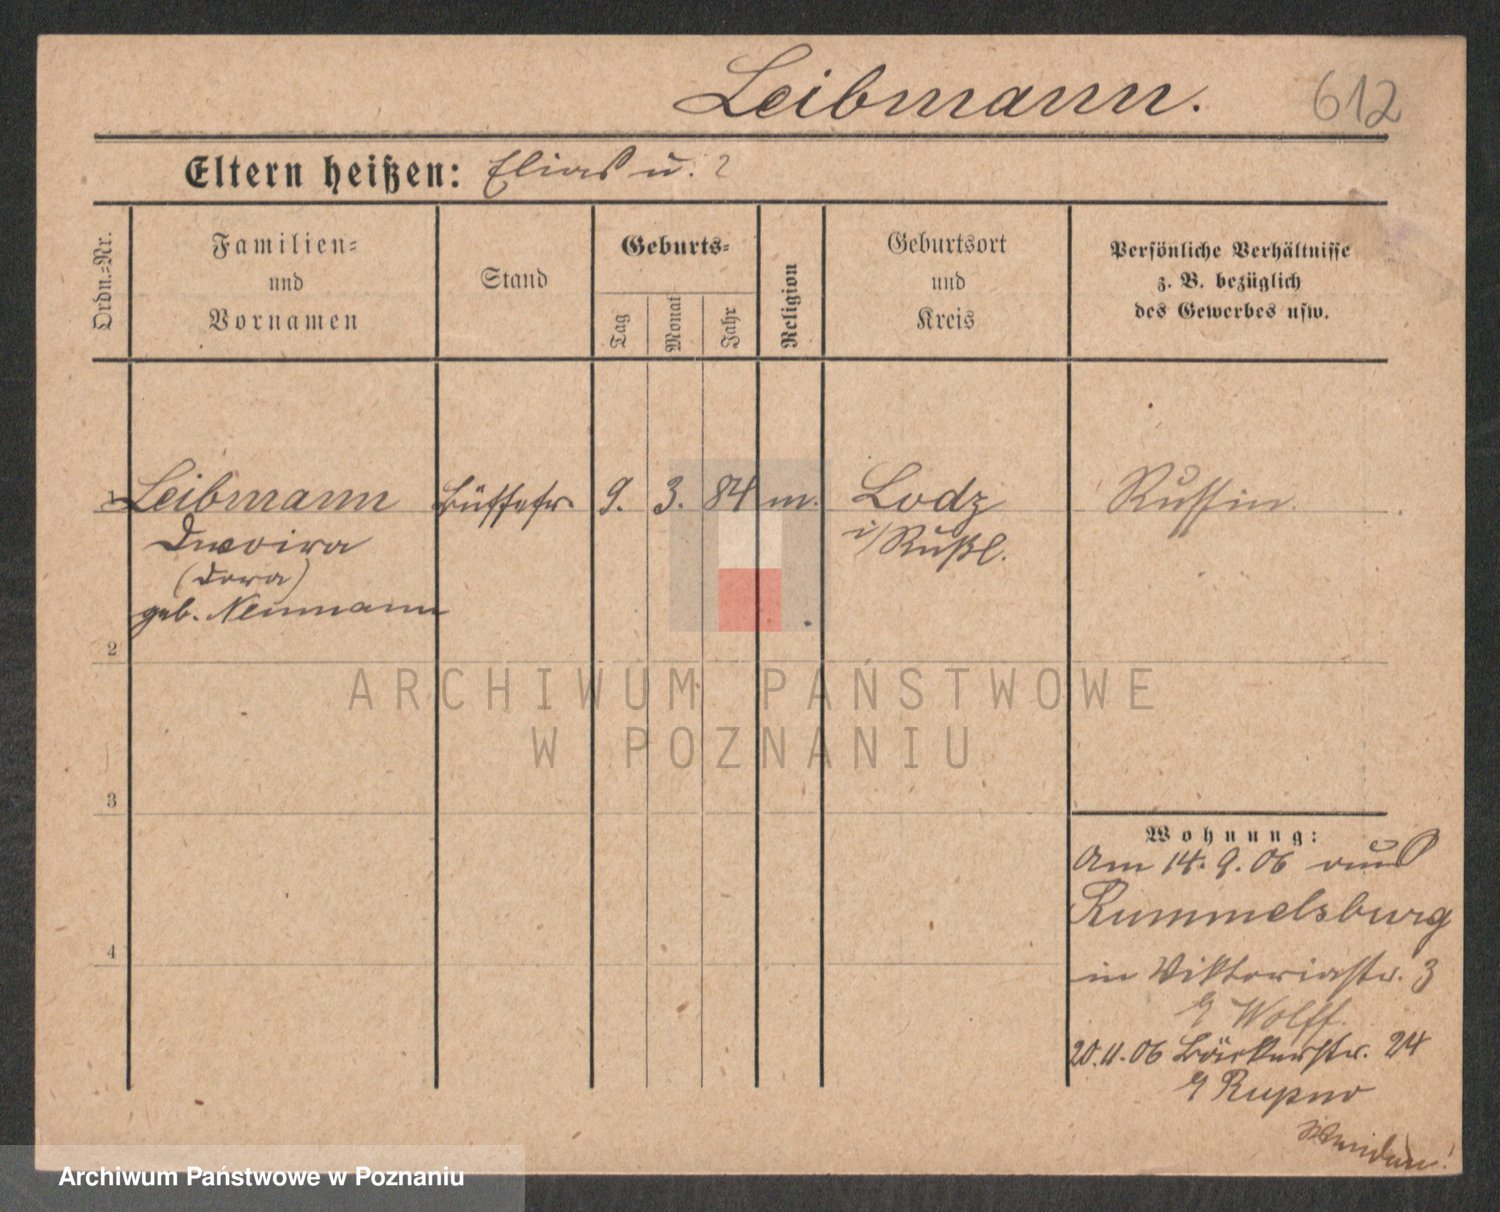 Leibmann. 612
Eltern heißen: Elias u. ?
Ordn.=Nr.
Familien=
und
Vornamen
Stand
Geburts=
Tag
Monat
Jahr
Religion
Geburtsort
und
Kreis
Persönliche Verhältnisse
z. B. bezüglich
des Gewerbes usw.
1 Leibmann 9. 3. 84 m. Lodz Russin.
Dwoira i/Rußl.
(Dora)
geb. Neumann
2
ARCHIWUM PAŃSTWOWE
W POZNANIU
3
Wohnung:
Am 14. 9. 06 aus
Rummelsburg
4
in Viktoriastr. 3
Wolff.
20.11.06 Bäckerstr. 24
Rupno
Wenden!
Archiwum Państwowe w Poznaniu